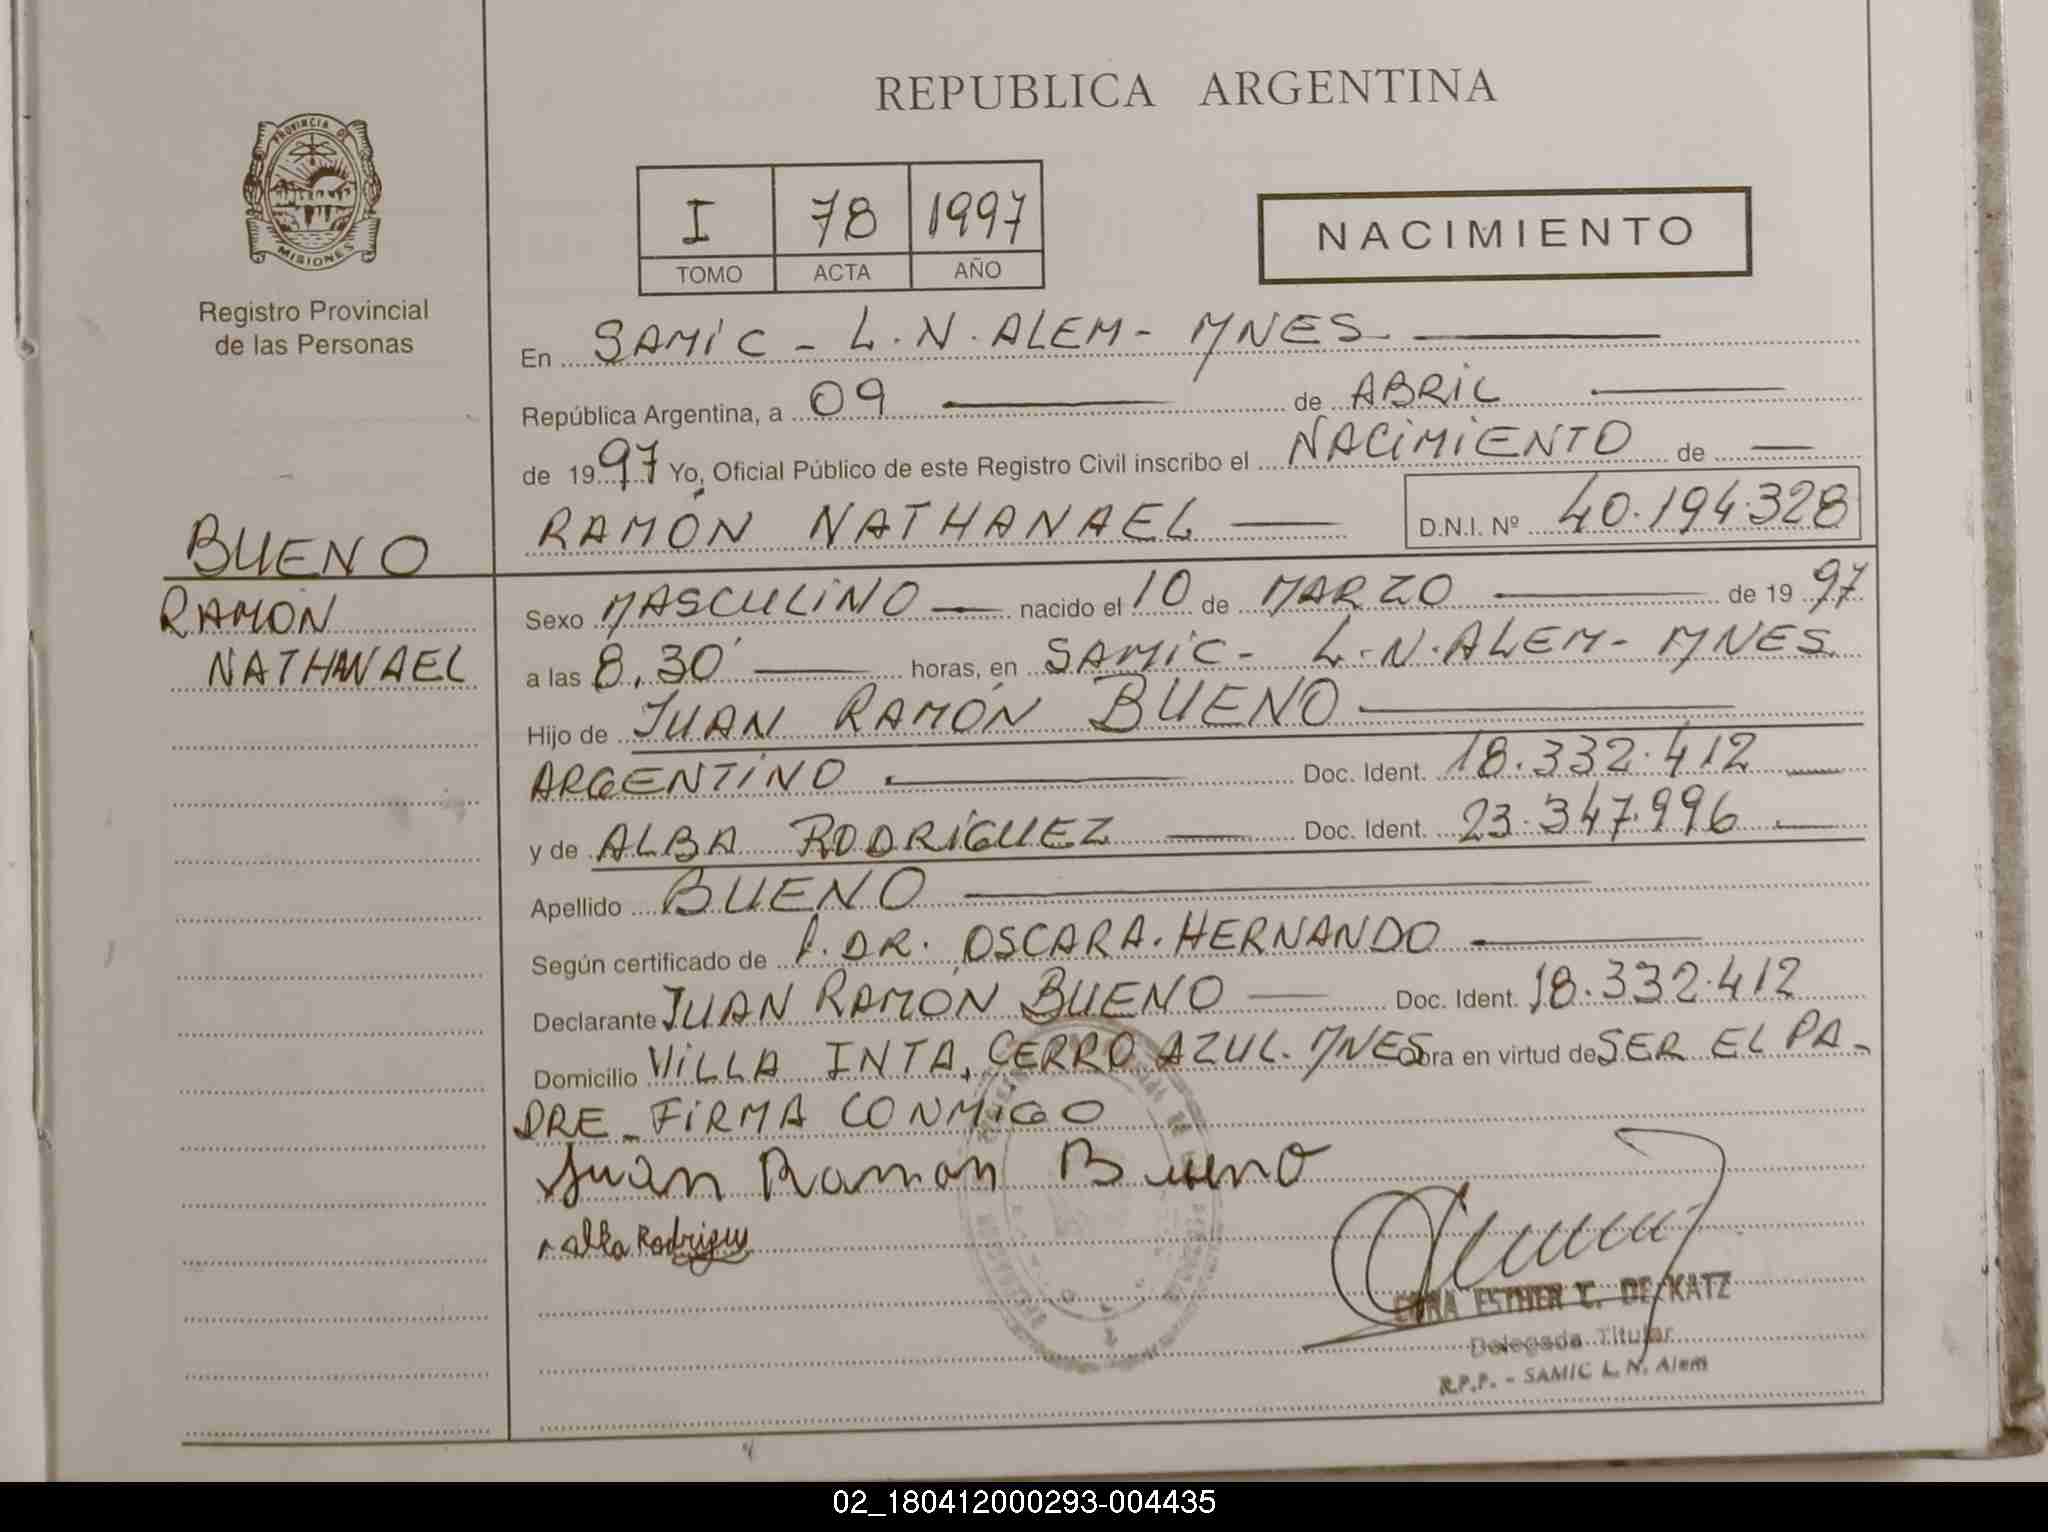 REPUBLICA ARGENTINA
PROVINCIA DE
MISIONES
Registro Provincial
de las Personas
I 78 1997
TOMO ACTA AÑO
NACIMIENTO
En SAMIC - L.N. ALEM - MNES
República Argentina, a 09 de ABRIL
de 1997 Yo, Oficial Público de este Registro Civil inscribo el NACIMIENTO de
RAMÓN NATHANAEL D.N.I. Nº 40.194.328
BUENO
RAMÓN
NATHANAEL
Sexo MASCULINO nacido el 10 de MARZO de 1997
a las 8,30' horas, en SAMIC - L.N. ALEM - MNES.
Hijo de JUAN RAMÓN BUENO
ARGENTINO Doc. Ident. 18.332.412
y de ALBA RODRÍGUEZ Doc. Ident. 23.347.996
Apellido BUENO
Según certificado de DR. OSCAR A. HERNANDO
Declarante JUAN RAMÓN BUENO Doc. Ident. 18.332.412
Domicilio VILLA INTA, CERRO AZUL. MNES Obra en virtud de SER EL PA-
DRE - FIRMA CONMIGO
Juan Ramon Bueno
Alba Rodrigues
ESTHER DE KATZ
Delegada Titular
R.P.P. - SAMIC L. N. Alem
02_180412000293-004435